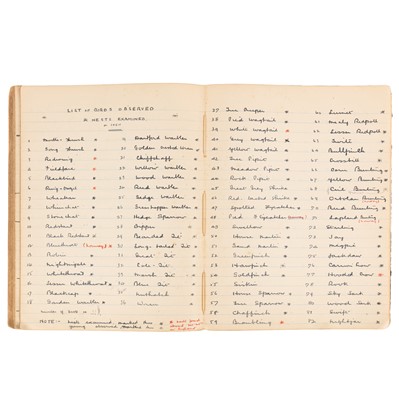 LIST OF BIRDS OBSERVED
& NESTS EXAMINED
1 Mistle Thrush
2 Song Thrush
3 Redwing
4 Fieldfare
5 Blackbird
6 Ring-Ouzel
7 Wheatear
8 Whinchat
9 Stonechat
10 Redstart
11 Black Redstart
12 Bluethroat
13 Robin
14 Nightingale
15 Whitethroat
16 Lesser Whitethroat
17 Blackcap
18 Garden Warbler
Dartford Warbler
Golden Crested Wren
Chiffchaff
Willow Warbler
Wood Warbler
Reed Warbler
Sedge Warbler
Grasshopper Warbler
Hedge Sparrow
Dipper
Bearded Tit
Long-tailed Tit
Great Tit
Cole Tit
Marsh Tit
Blue Tit
Nuthatch
36 Wren
NOTE:- Nests examined, marked thus
37 Tree Creeper
38 Pied Wagtail
39 White Wagtail
40 Grey Wagtail
41 Yellow Wagtail
42 Tree Pipit
43 Meadow Pipit
44 Rock Pipit
45 Great Grey Shrike
46 Red backed Shrike
47 Spotted Flycatcher
48 Pied Flycatcher
49 Swallow
50 House Martin
51 Sand Martin
52 Greenfinch
53 Hawfinch
54 Goldfinch
55 Siskin
56 House Sparrow
57 Tree Sparrow
58 Chaffinch
59 Brambling
60 Linnet
61 Mealy Redpoll
62 Lesser Redpoll
63 Twite
64 Bullfinch
65 Crossbill
66 Corn Bunting
67 Yellow Bunting
68 Cirl Bunting
69 Ortolan Bunting
70 Reed Bunting
71 Lapland Bunting
72 Starling
73 Jay
74 Magpie
75 Jackdaw
76 Carrion Crow
77 Hooded Crow
78 Rook
79 Sky Lark
80 Wood Lark
81 Swift
82 Nightjar